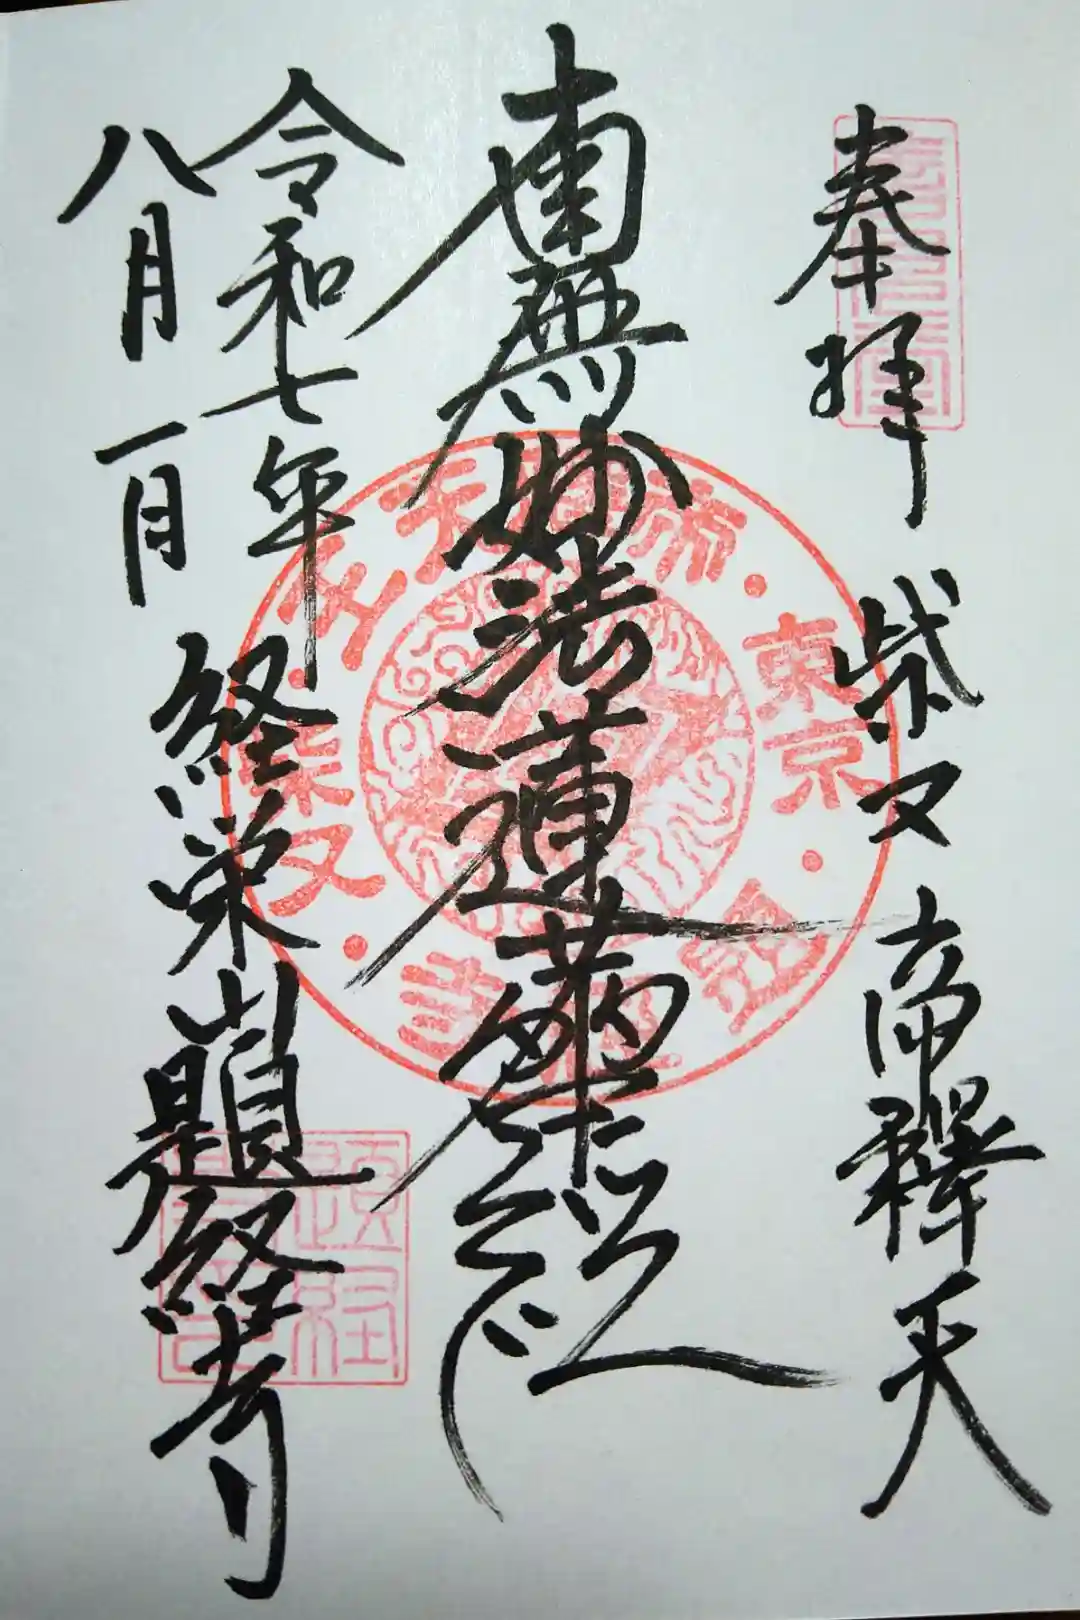 奉拝
柴又 帝釋天
南無妙法蓮華経
令和七年
八月一日
経栄山題経寺
東京
柴又
帝釈天王
題経寺